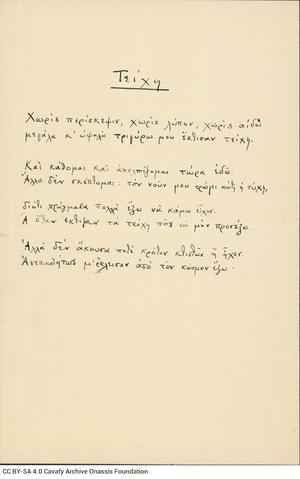 Τείχη
Χωρίς περίσκεψιν, χωρίς λύπην, χωρίς αιδώ
μεγάλα κ' υψηλά τριγύρω μου έκτισαν τείχη.
Και κάθομαι και απελπίζομαι τώρα εδώ.
Άλλο δεν σκέπτομαι: τον νουν μου τρώγει αυτή η τύχη·
διότι πράγματα πολλά έξω να κάμω είχον.
Ά όταν έκτιζαν τα τείχη πώς να μην προσέξω.
Αλλά δεν άκουσα ποτέ κρότον κτιστών ή ήχον.
Ανεπαισθήτως μ' έκλεισαν από τον κόσμον έξω.
CC BY-SA 4.0 Cavafy Archive Onassis Foundation